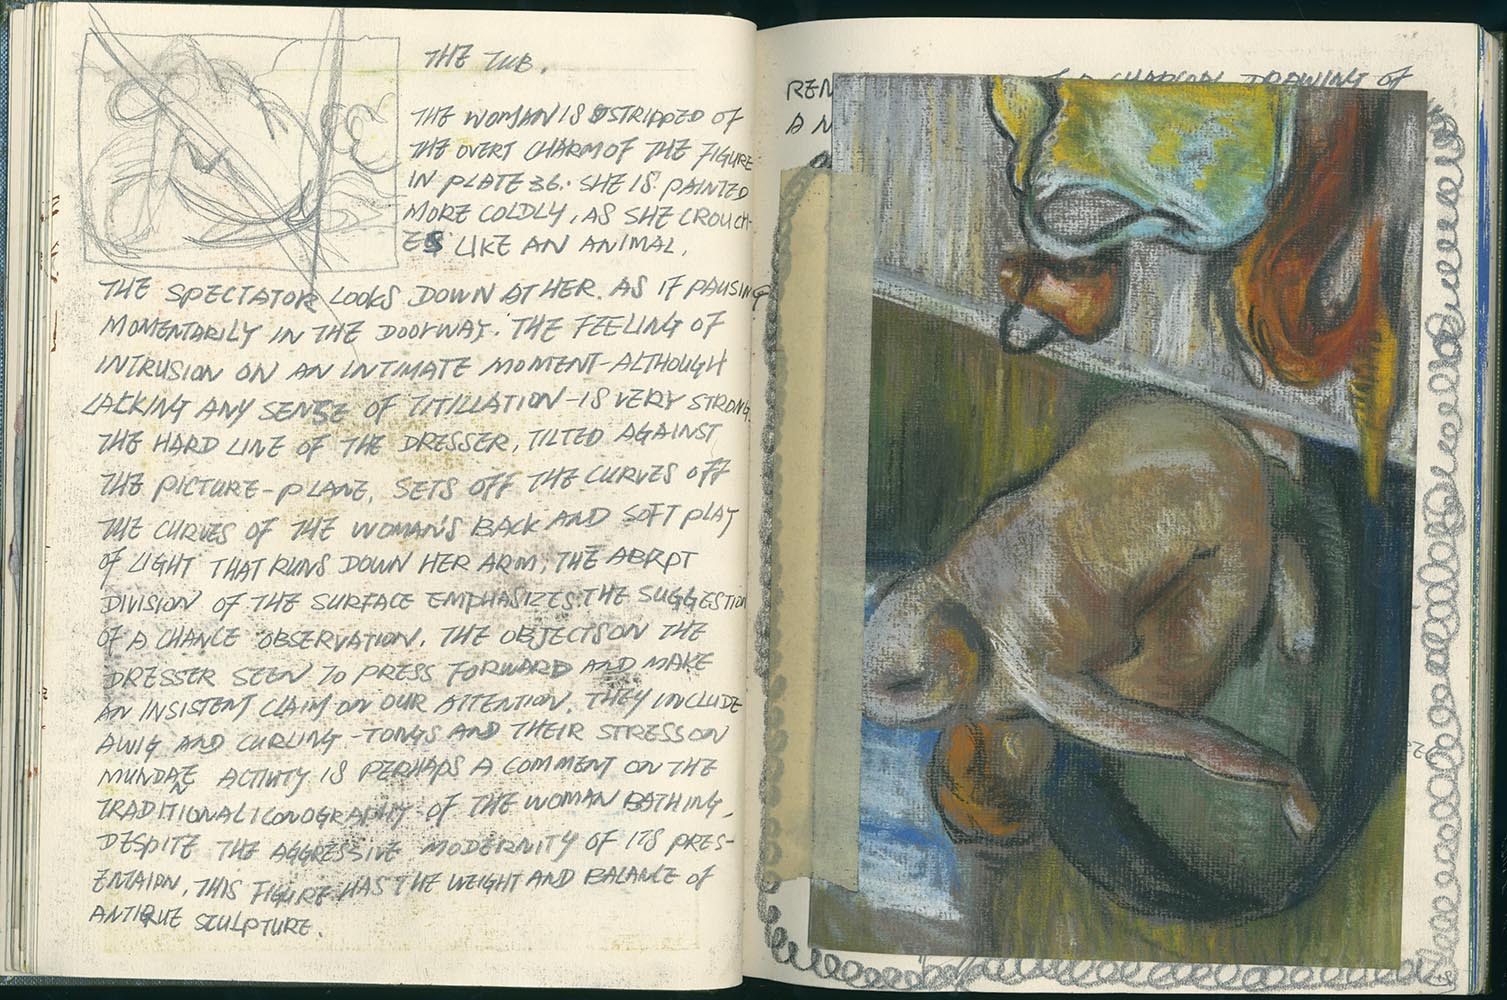 THE TUB.
THE WOMAN IS STRIPPED OF
THE OVERT CHARM OF THE FIGURE
IN PLATE 36. SHE IS PAINTED
MORE COLDLY, AS SHE CROUCH-
ES LIKE AN ANIMAL.
THE SPECTATOR LOOKS DOWN AT HER. AS IF PAUSING
MOMENTARILY IN THE DOORWAY. THE FEELING OF
INTRUSION ON AN INTIMATE MOMENT-ALTHOUGH
LACKING ANY SENSE OF TITILLATION-IS VERY STRONG.
THE HARD LINE OF THE DRESSER, TILTED AGAINST
THE PICTURE-PLANE, SETS OFF THE CURVES OFF
THE CURVES OF THE WOMAN'S BACK AND SOFT PLAY
OF LIGHT THAT RUNS DOWN HER ARM, THE ABRPT
DIVISION OF THE SURFACE EMPHASIZES THE SUGGESTION
OF A CHANCE OBSERVATION. THE OBJECTS ON THE
DRESSER SEEN TO PRESS FORWARD AND MAKE
AN INSISTENT CLAIM ON OUR ATTENTION. THEY INCLUDE
A WIG AND CURLING-TONGS AND THEIR STRESS ON
MUNDANE ACTIVITY IS PERHAPS A COMMENT ON THE
TRADITIONAL ICONOGRAPHY OF THE WOMAN BATHING.
DESPITE THE AGGRESSIVE MODERNITY OF ITS PRES-
ENTAION, THIS FIGURE HAS THE WEIGHT AND BALANCE OF
ANTIQUE SCULPTURE.
DRAWING OF